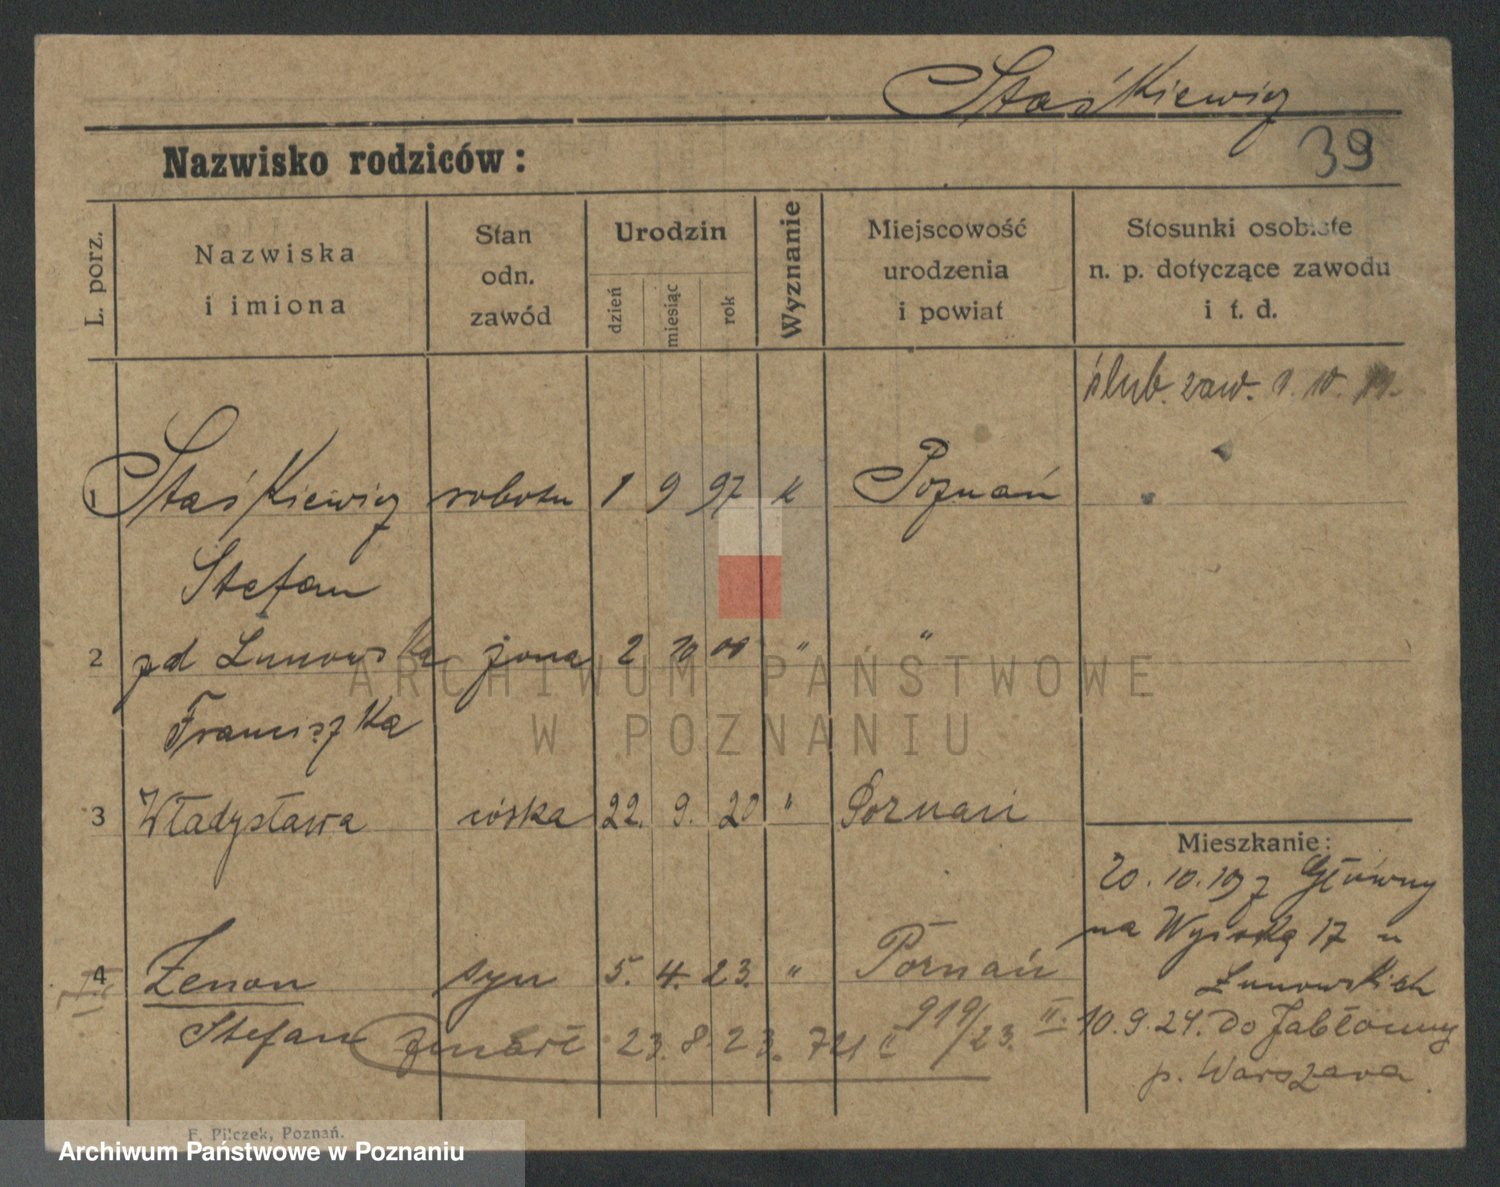 Staśkiewicz
39
Nazwisko rodziców:
L. porz.
Nazwiska
i imiona
Stan
odn.
zawód
Urodzin
dzień
miesiąc
rok
Wyznanie
Miejscowość
urodzenia
i powiat
Stosunki osobiste
n. p. dotyczące zawodu
i t. d.
ślub. zaw. 1. 10.
1 Staśkiewicz robotn 1 9 97 k Poznań
Stefan
2 zd Lunowska żona 2 10 00 " "
Franciszka
3 Władysława córka 22. 9. 20 " Poznań
Mieszkanie:
20. 10. 19 z Główny
na Wysoką 17 u
Lunowskich
4 Zenon syn 5. 4. 23. " Poznań
Stefan zmarł 23. 8. 23. 919/23. II.
10. 9. 24. Do Jabłonny
p. Warszawa
F. Pilczek, Poznań.
ARCHIWUM PAŃSTWOWE
W POZNANIU
Archiwum Państwowe w Poznaniu